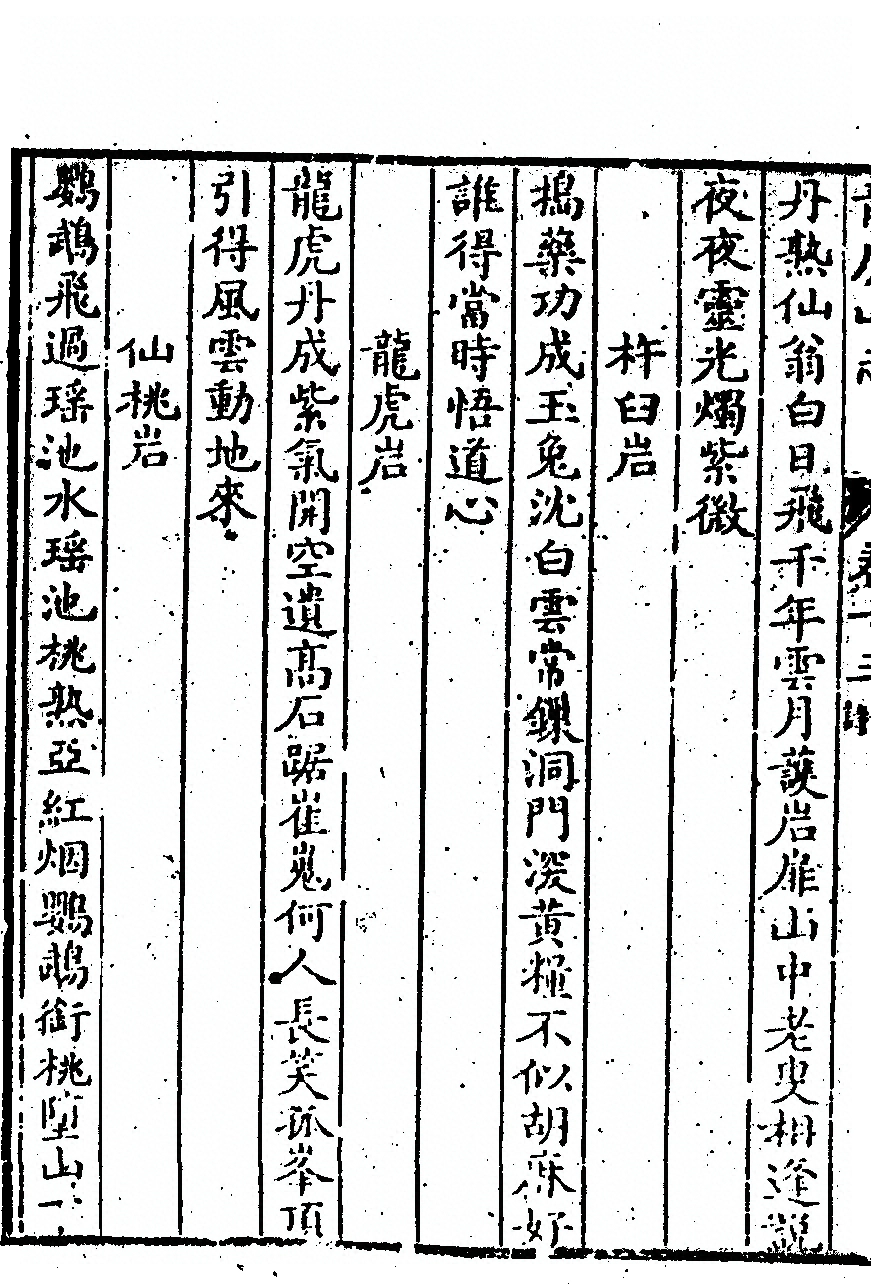 卷十三 詩
丹熟仙翁白日飛千年雲月護岩扉山中老叟相逢說
夜夜靈光燭紫微
杵臼岩
搗藥功成玉兔沈白雲常鏁洞門深黄糧不似胡麻好
誰得當時悟道心
龍虎岩
龍虎丹成紫氣開空遺高石踞崔嵬何人長笑孤峯頂
引得風雲動地來
仙桃岩
鸚鵡飛過瑶池水瑶池桃熟亞紅烟鸚鵡銜桃墮山